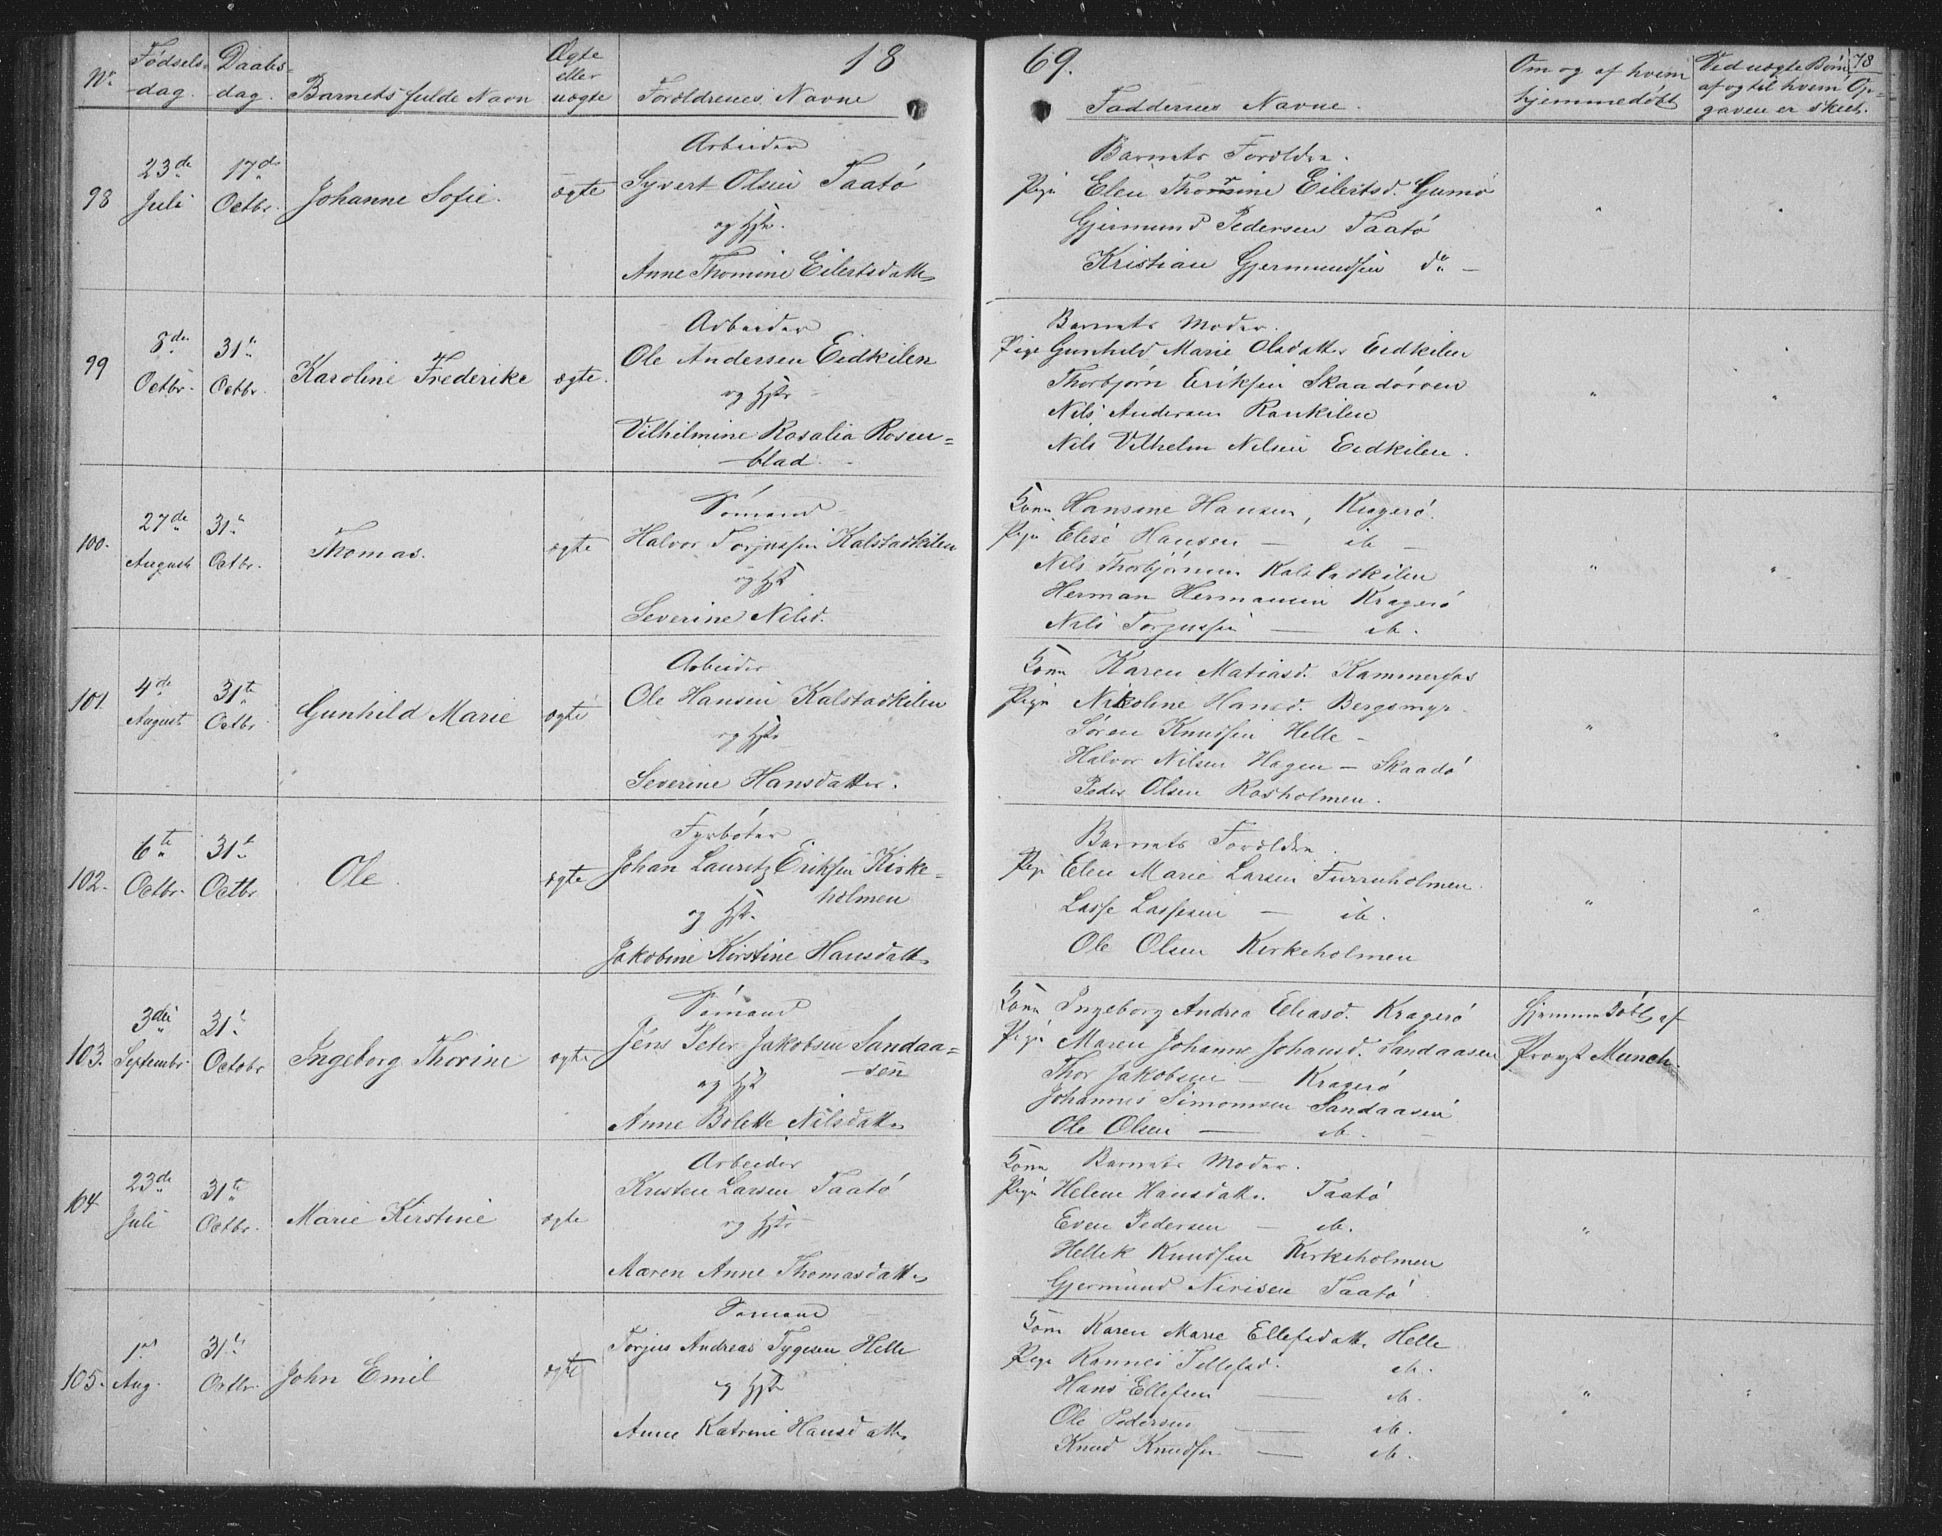 1869.
78
No
Fødsels-
dag.
Daabs-
dag.
Barnets fulde Navn
Ægte
eller
uægte
Forældrenes Navne
Faddernes Navne.
Om og af hvem
hjemmedøbt
Ved uægte Børn
af og til hvem Op-
gaven er skeet.
98
23de
Juli
17de
Octbr.
Johanne Sofie.
ægte
Arbeider
Syvert Olsen Taatø
og Hst.
Anne Thomine Eilertsdatt.
Barnets Forældre.
Pige Elen Thomine Eilertsd. Gumø
Gjermund Pedersen Taatø
Kristian Gjermundsen do —
99
8de
Octbr.
31te
Octbr.
Karoline Frederike
ægte.
Arbeider
Ole Andersen Eidkilen
og Hst.
Vilhelmine Rosalia Rosen=
blad.
Barnets Moder.
Pige Gunhild Marie Olsdatter Eidkilen
Thorbjørn Eriksen Skaadørven
Nils Andersen Rankilen
Nils Vilhelm Nilsen Eidkilen.
100.
27de
August
31te
Octbr.
Thomas.
ægte
Sømand
Halvor Torjussen Kalstadkilen
og Hst
Severine Nilsd.
Kone Hansine Hansen, Kragerø.
Pige Elise Hansen — ib —
Nils Thorbjørnsen Kalstadkilen
Herman Hermansen Kragerø
Nils Torjussen — ib.
101.
4de
August
31te
Octbr
Gunhild Marie
ægte
Arbeider
Ole Hansen Kalstadkilen
og Hst.
Severine Hansdatter.
Kone Karen Matiasd. Kammerfos
Pige Nikoline Hansd. Bergsmyr.
Søren Knudsen Helle —
Halvor Nilsen Hagen — Skaadø
Peder Olsen Rosholmen.
102.
6te
Octbr.
31te
Octbr
Ole.
ægte
Fyrbøter
Johan Lauritz Eriksen Kirke=
holmen
og Hst.
Jakobine Kirstine Hansdatt.
Barnets Forældre.
Pige Elen Marie Larsen Furuholmen.
Lasse Lassesen — ib.
Ole Olsen Kirkeholmen
103.
3die
Septembr.
31te
October
Ingeborg Thorine
ægte
Sømand
Jens Peter Jakobsen Sandaa=
sen
og Hst
Anne Bolette Nilsdatt.
Kone Ingeborg Andrea Eliasd. Kragerø
Pige Maren Johanne Johansd. Sandaasen
Thor Jakobsen — Kragerø
Johannes Simonsen Sandaasen
Ole Olsen — ib. —
Hjemmedøbt af
Provst Munch.
104
23de
Juli
31te
Octbr.
Marie Kirstine
ægte
Arbeider
Kristen Larsen Taatø
og Hst
Maren Anne Thomasdatt.
Kone Barnets Moder.
Pige Helene Hansdatt. Taatø
Even Pedersen — ib.
Hellek Knudsen Kirkeholmen
Gjermund Nirisen Taatø
105.
1ste
Aug.
31te
Octbr.
John Emil
ægte
Sømand
Torjus Andreas Tygesen Helle
og Hst
Anne Katrine Hansdatt.
Kone Karen Marie Ellefsdatt. Helle
Pige Kannei Tellefsd. ib.
Hans Ellefsen — ib.
Ole Pedersen — ib.
Knud Knudsen — ib.